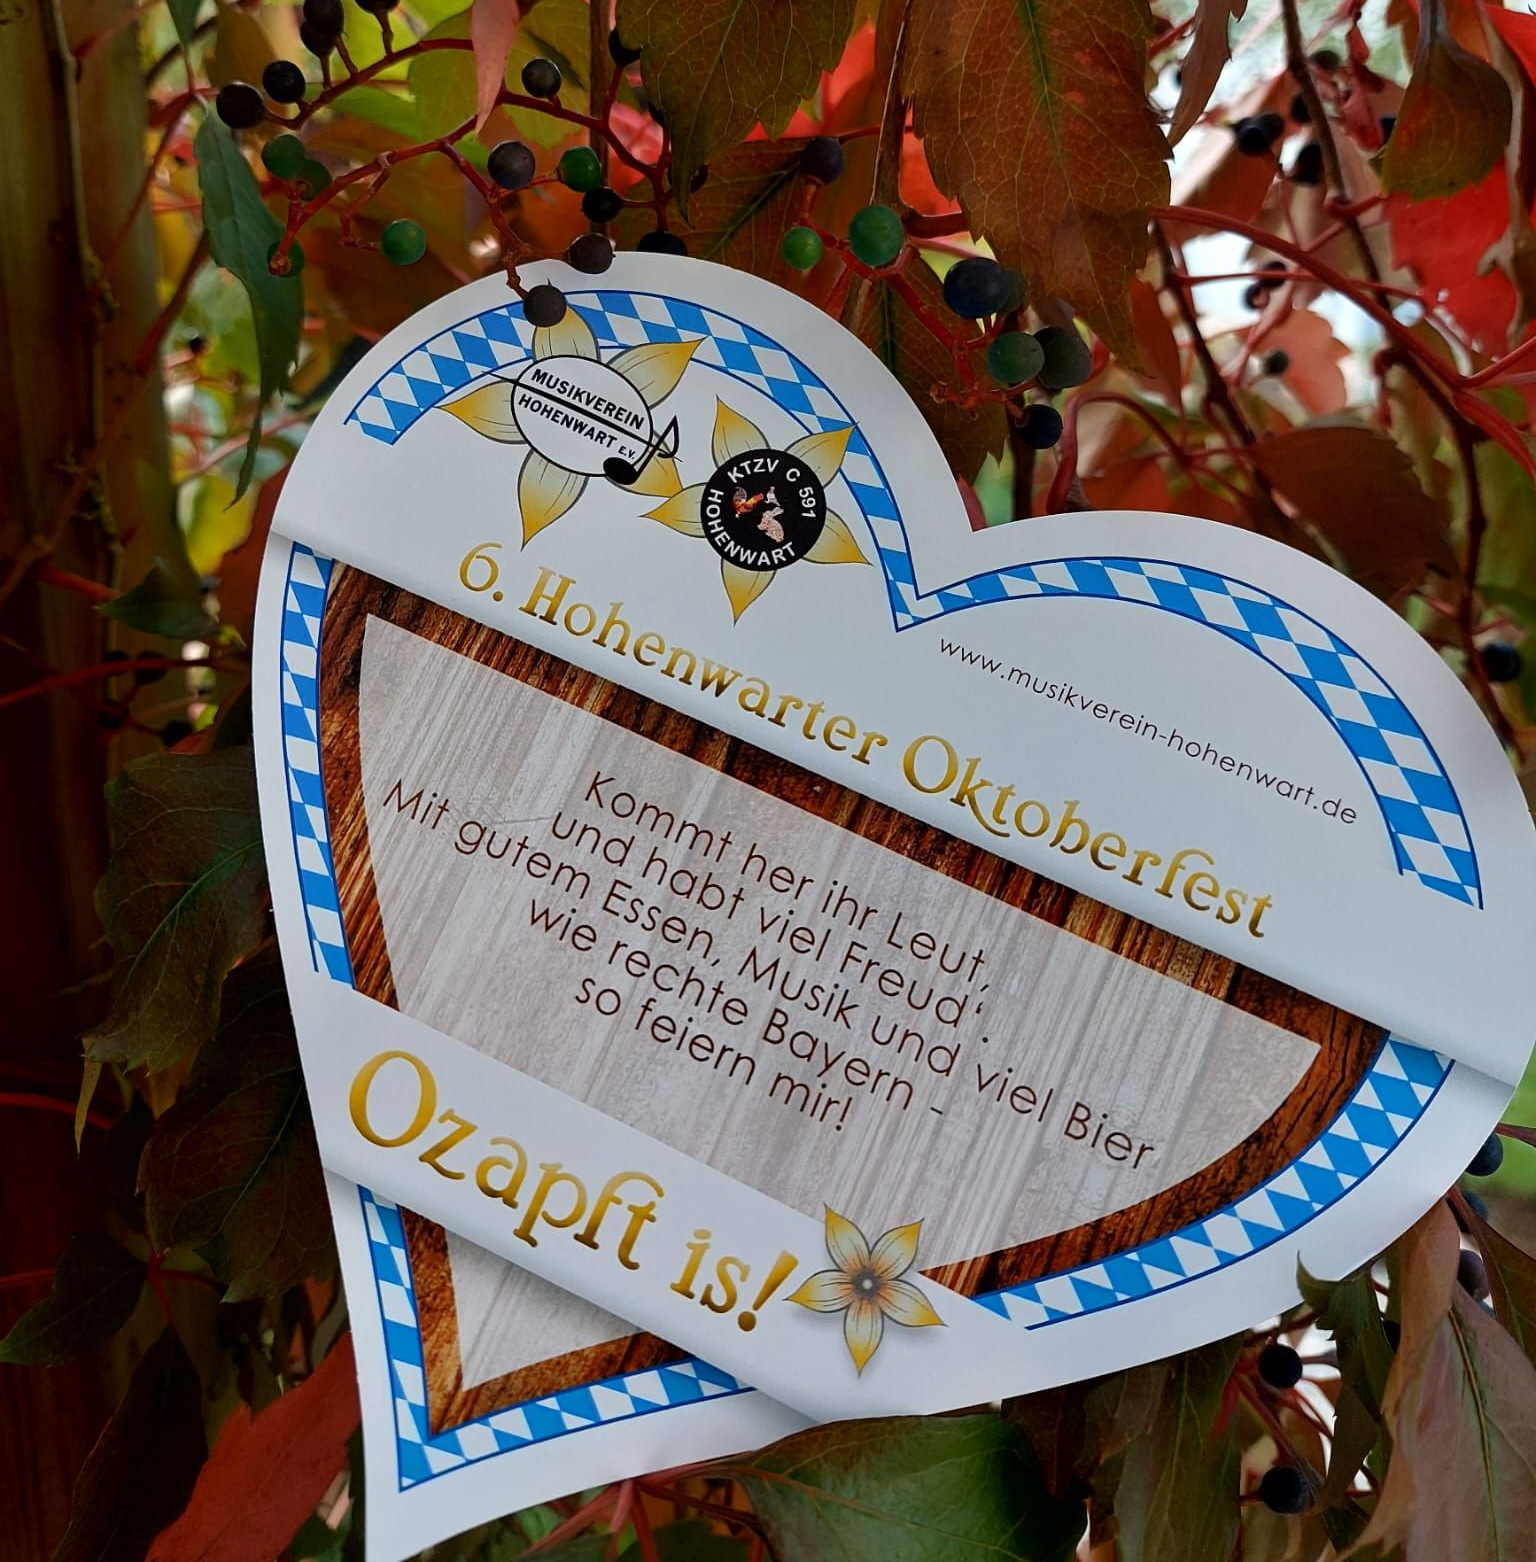 MUSIKVEREIN
HOHENWART E.V.
KTZV C 591
HOHENWART
6. Hohenwarter Oktoberfest
www.musikverein-hohenwart.de
Kommt her ihr Leut,
und habt viel Freud‘.
Mit gutem Essen, Musik und viel Bier
wie rechte Bayern -
so feiern mir!
Ozapft is!